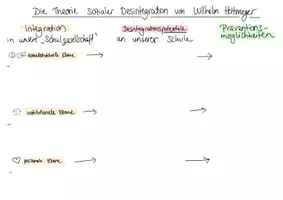 Die Theorie sozialer Desintegration von Wilhelm Heitmeyer
Integration
in unserer „Schulgesellschaft"
Desintegrationspotentiale
an unserer Schule
Präventions-
möglichkeiten
sozialstrukturelle Ebene
institutionelle Ebene
personale Ebene